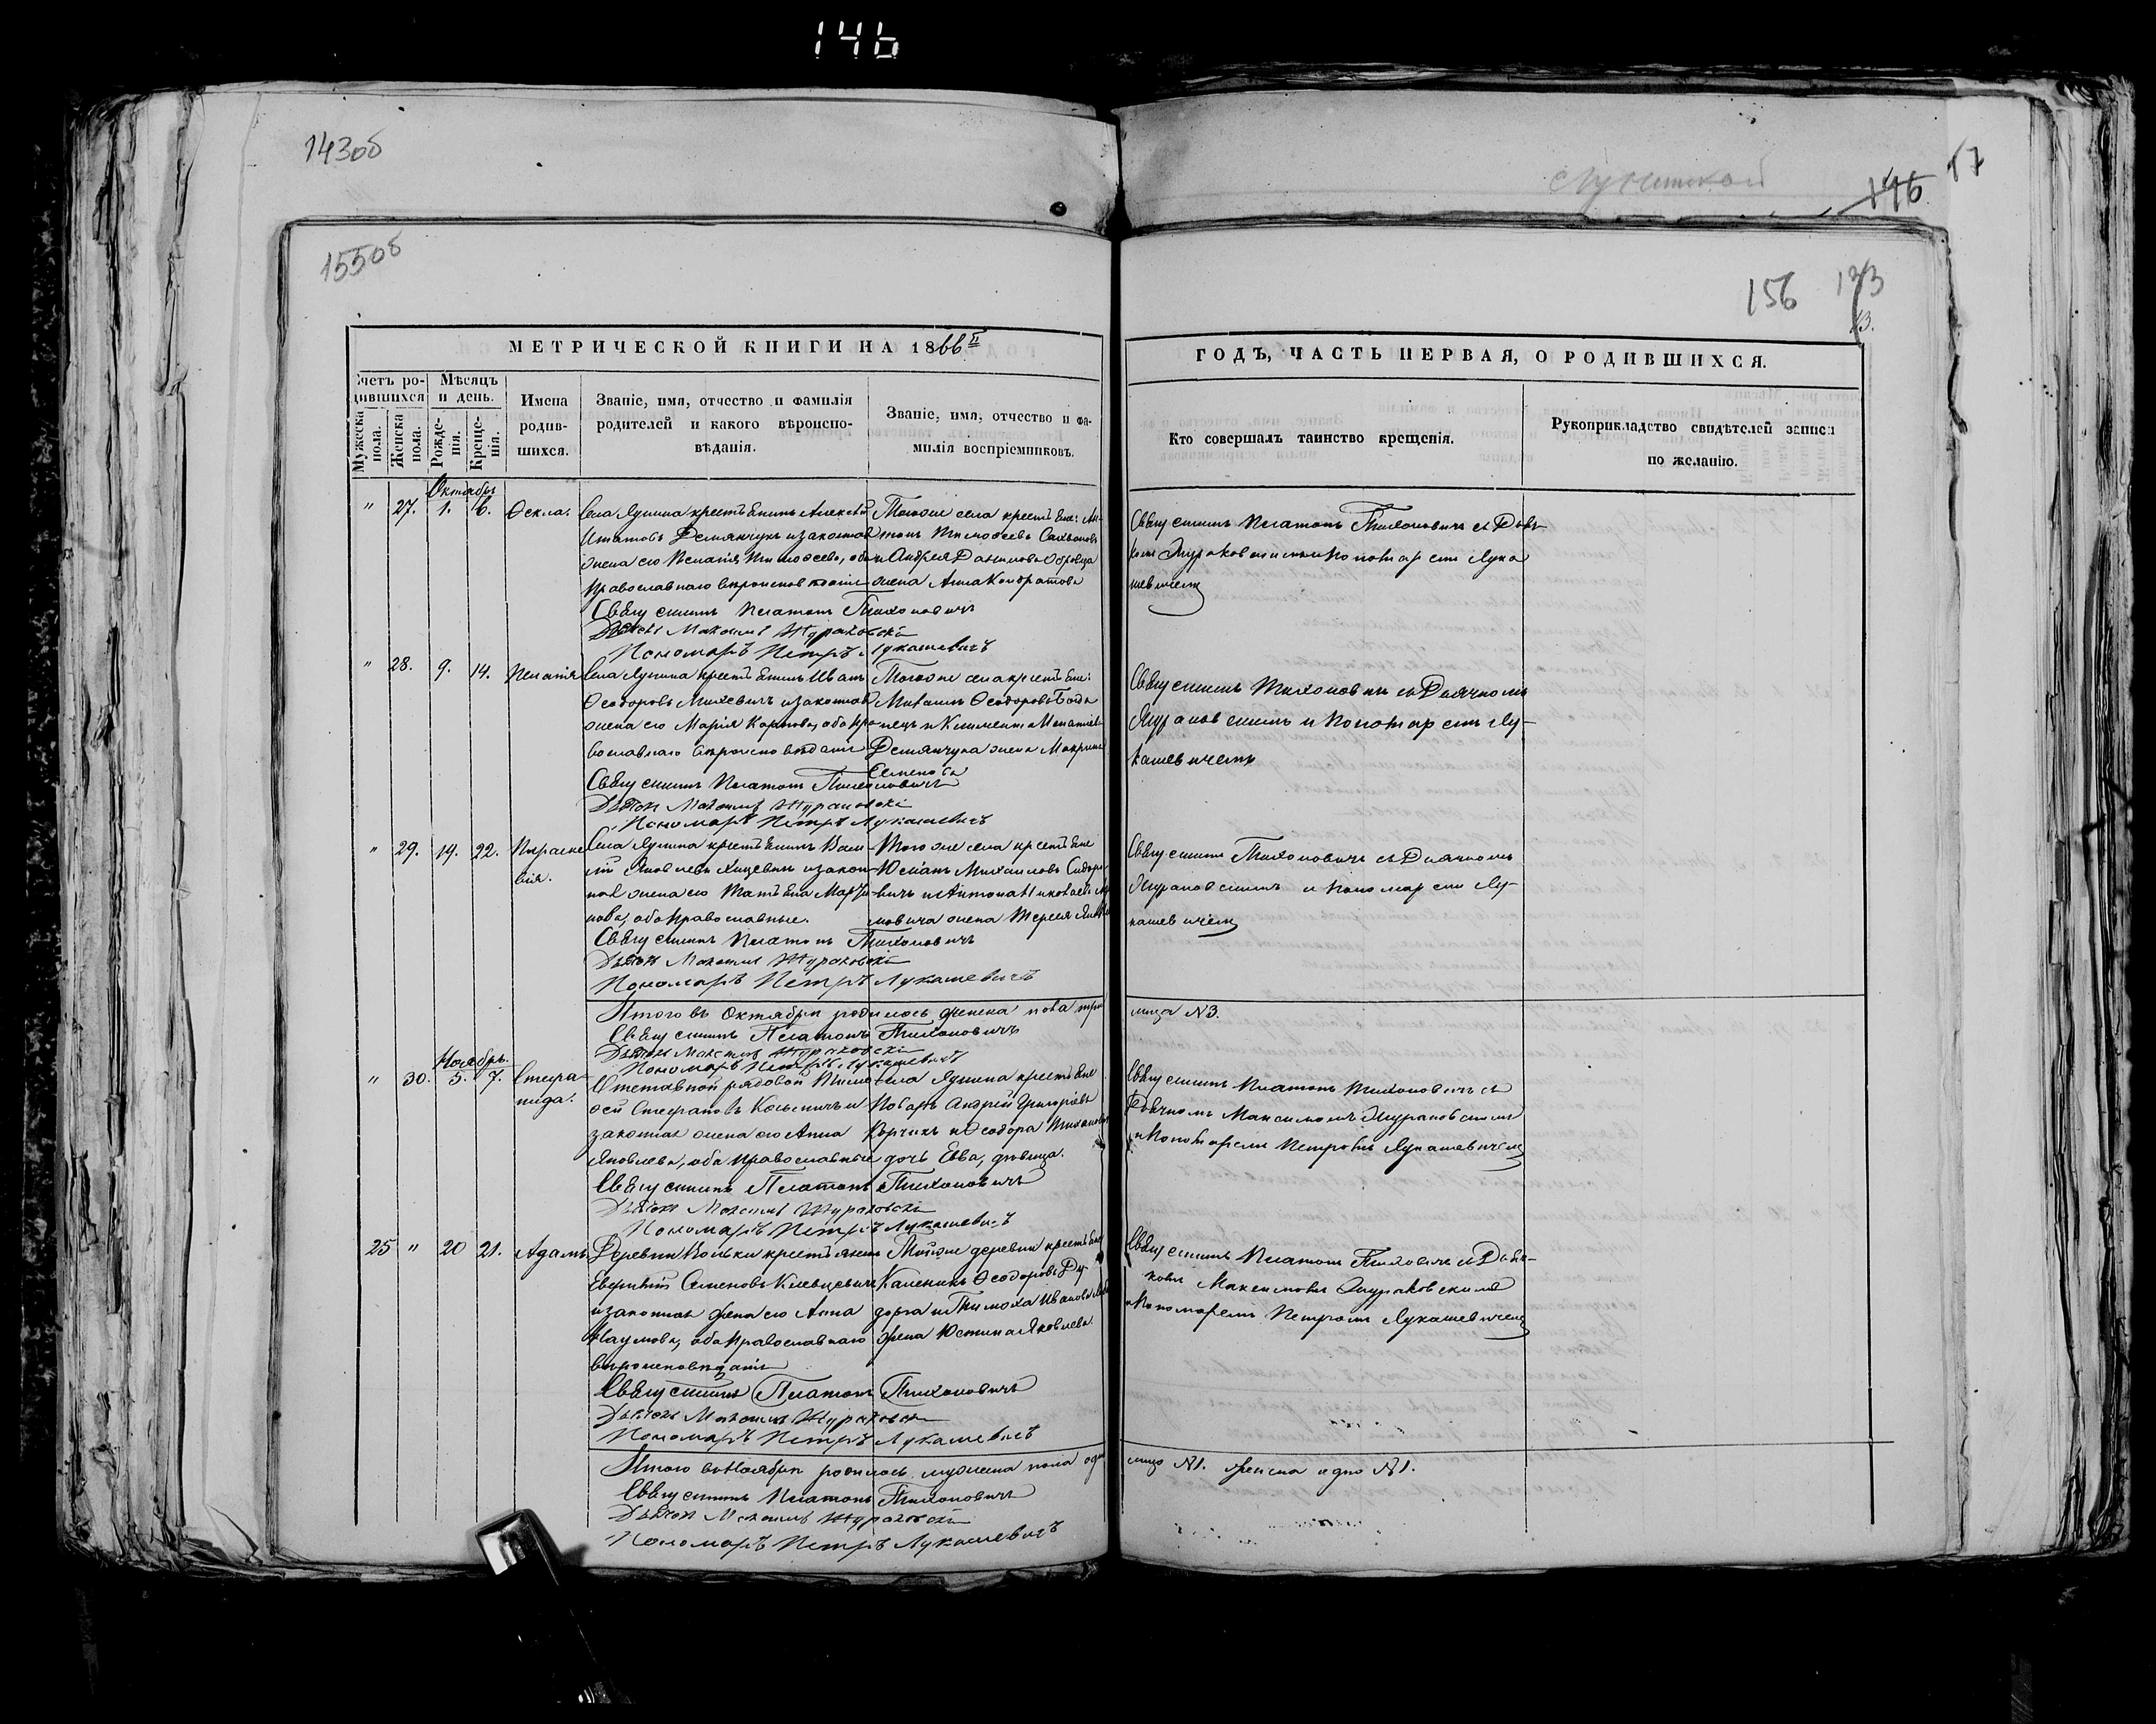 146
143об
Лунинской
146 17
155об
156 133
13.
МЕТРИЧЕСКОЙ КНИГИ НА 1866й
ГОДЪ, ЧАСТЬ ПЕРВАЯ, О РОДИВШИХСЯ.
Счетъ родившихся
Мужеска пола.
Женска пола.
Мѣсяцъ и день.
Рожденія.
Крещенія.
Имена родившихся.
Званіе, имя, отчество и фамилія
родителей и какого вѣроисповѣданія.
Званіе, имя, отчество и фамилія воспріемниковъ.
Кто совершалъ таинство крещенія.
Рукоприкладство свидѣтелей записи
по желанію.
Октябрь
" 27. 1. 6. Ѳекла.
Села Лунина крестьянинъ Алексѣй
Игнатовъ Демянчукъ и законная
жена его Пелагія Тимоѳеева, оба
православнаго вѣроисповѣданія
Тогоже села крестьяне: Ан-
тонъ Тимоѳеевъ
и Андрея Данилова
жена Анна Кондратова
Священникъ Платонъ Тихоновичъ
Дьячокъ Максимъ Жураковскій
Пономарь Петръ Лукашевичъ
Священникъ Платонъ Тихоновичъ съ Дьяч-
комъ Жураковскимъ и Пономаремъ Лука
шевичемъ
" 28. 9. 14. Пелагія
Села Лунина крестьянинъ Иванъ
Ѳеодоровъ Михевичъ и законная
жена его Марія Карпова, оба пра-
вославнаго вѣроисповѣданія
Тогоже села крестьяне:
Михаилъ Ѳеодоровъ
и Климента Игнатіева
Демянчука жена Макрина
Семенова
Священникъ Платонъ Тихоновичъ
Дьячокъ Максимъ Жураковскій
Пономарь Петръ Лукашевичъ
Священникъ Тихоновичъ съ Дьячкомъ
Жураковскимъ и Пономаремъ Лу-
кашевичемъ
" 29. 19. 22. Параске
вія.
Села Лунина крестьянинъ Васи-
лій Яковлевъ и закон-
ная жена его Татьяна Марты-
нова, оба православные.
Тогоже села крестьяне
Юліанъ Михаиловъ Сидоро-
вичъ и Антона Николаева
жена Терезія
Священникъ Платонъ Тихоновичъ
Дьячокъ Максимъ Жураковскій
Пономарь Петръ Лукашевичъ
Священникъ Тихоновичъ съ Дьячкомъ
Жураковскимъ и Пономаремъ Лу-
кашевичемъ
Итого въ Октябрѣ родилось женска пола три
лица №3.
Священникъ Платонъ Тихоновичъ
Дьячокъ Максимъ Жураковскій
Пономарь Петръ Лукашевичъ
Ноябрь.
" 30. 5. 7. Стефа-
нида.
Отставной рядовой Тимо-
ѳей Стефановъ и
законная жена его Анна
Яковлева, оба православные
Села Лунина крестьяне
Андрей Григоріевъ
Корчикъ и Ѳеодора
дочь Евва, дѣвица.
Священникъ Платонъ Тихоновичъ
Дьячокъ Максимъ Жураковскій
Пономарь Петръ Лукашевичъ
Священникъ Платонъ Тихоновичъ съ
Дьячкомъ Максимомъ Жураковскимъ
и Пономаремъ Петромъ Лукашевичемъ
25 " 20 21. Адамъ
Деревни крестьянинъ
Евфимій Семеновъ Клевцевичъ
и законная жена его Анна
Наумова, оба православнаго
вѣроисповѣданія
Тойже деревни крестьяне
Каленикъ Ѳеодоровъ
и Тимоха Иванова
жена Юстина Яковлева
Священникъ Платонъ Тихоновичъ
Дьячокъ Максимъ Жураковскій
Пономарь Петръ Лукашевичъ
Священникъ Платонъ Тихоновичъ съ Дьяч-
комъ Максимомъ Жураковскимъ
и Пономаремъ Петромъ Лукашевичемъ
Итого въ Ноябрѣ родилось мужеска пола одно
лицо №1. женска одно №1.
Священникъ Платонъ Тихоновичъ
Дьячокъ Максимъ Жураковскій
Пономарь Петръ Лукашевичъ